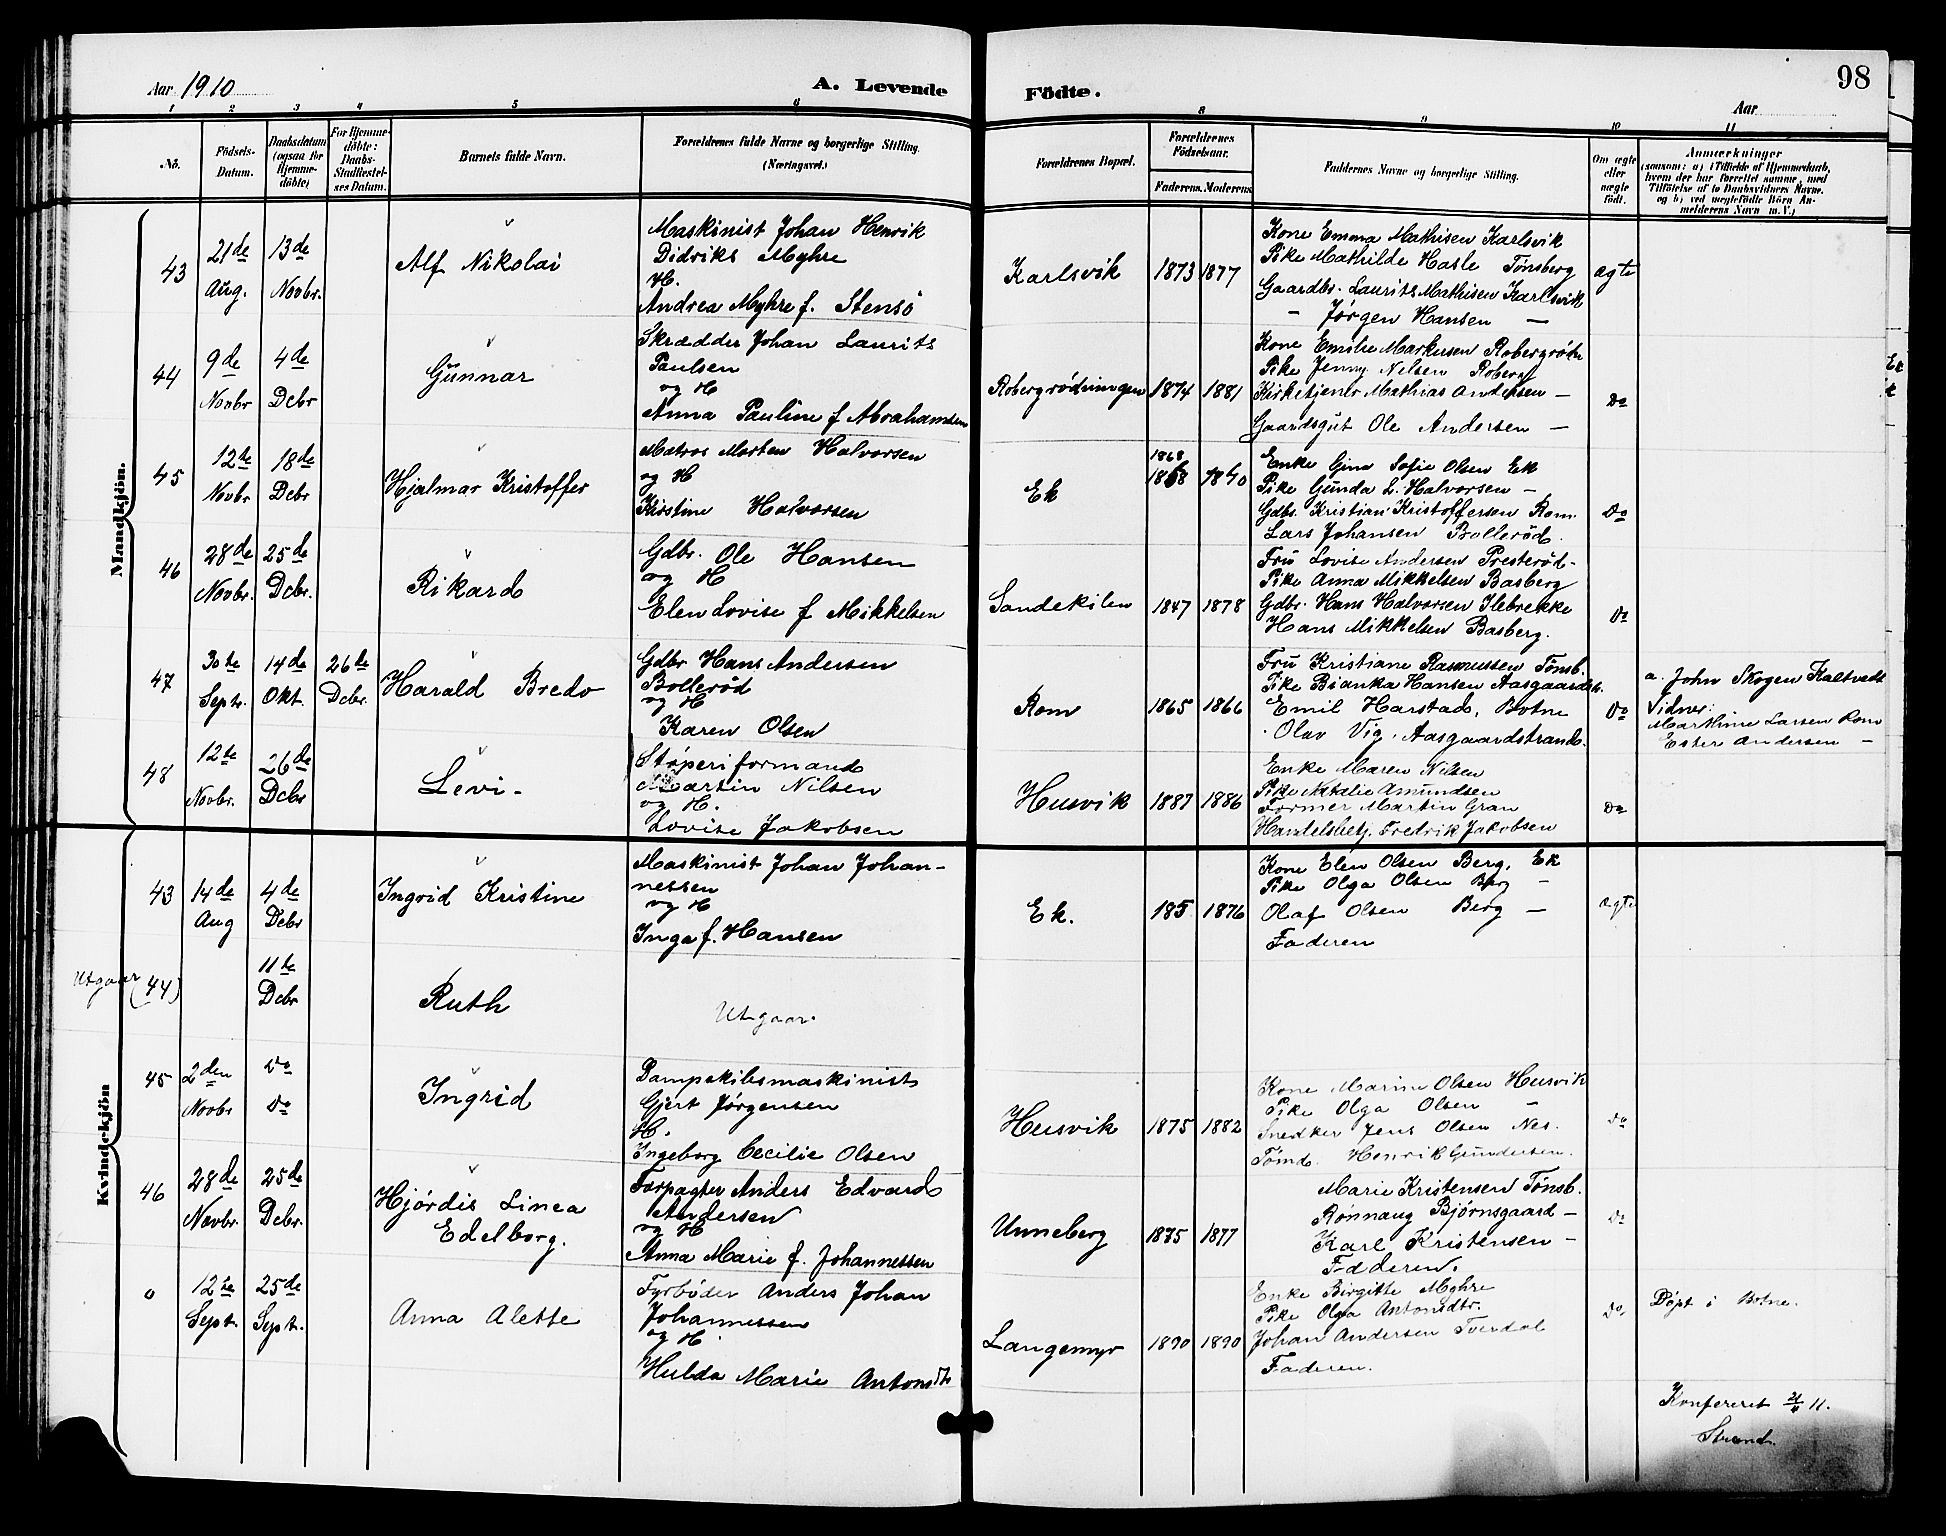 Aar 1910
A. Levende
Födte.
Aar
98
1 2 3 4 5 6 8 9 10 11
No.
Födsels-
Datum.
Daabsdatum
(ogsaa for
Hjemme-
döbte)
For Hjemme-
döbte:
Daabs-
Stadfæstel-
ses Datum.
Barnets fulde Navn.
Forældrenes fulde Navne og borgerlige Stilling.
(Næringsvei.)
Forældrenes Bopæl.
Forældrenes
Födselsaar.
Faderens. Moderens
Faddernes Navne og borgerlige Stilling.
Om ægte
eller
uægte
født.
Anmærkninger
(saasom: a) i Tilfælde af Hjemmedaab,
hvem der har forrettet samme, med
Tilföielse af to Daabsvidners Navne.
og b) ved uægtefödte Börn An-
melderens Navn m. V.)
Mandkjön.
43
21de
Aug.
13de
Novbr.
Alf Nikolai
Maskinist Johan Henrik
Didriks Myhre
H.
Andrea Myhre f. Stensö
Karlsvik
1873 1877
Kone Emma Mathisen Karlsvik
Pike Mathilde Hasle Tønsberg
Gaardbr. Laurits Mathisen Karlsvik
— Jørgen Hansen —
ægte
44
9de
Novbr
4de
Dcbr
Gunnar
Skrædder Johan Laurits
Paulsen
og H
Anna Pauline f Abrahamsen
Robergrødningen
1874 1881
Kone Emilie Markussen Robergrødn
Pike Jenny Nelsen Roberg
Kirketjener Mathias Andersen —
Gaardsgut Ole Andersen —
Do
45
12te
Novbr
18de
Dcbr
Hjalmar Kristoffer
Matros Morten Halvorsen
og H
Kirstine Halvorsen
Ek
1868
1868 1870
Enke Gina Sofie Olsen Ek
Pike Gunda L. Halvorsen —
Gdbr. Kristian Kristoffersen Rom
Lars Johansen Bollerød.
Do
46
28de
Novbr.
25de
Dcbr.
Rikard
Gdbr. Ole Hansen
og H
Elen Lovise f Mikkelsen
Sandekilen
1847 1878
Fru Lovise Andersen Presterød-
Pike Anna Mikkelsen Basberg
Gdbr. Hans Halvorsen Ilebrekke
Hans Mikkelsen Basberg.
Do
47
30te
Septr.
14de
Okt.
26te
Dcbr.
Harald Bredo
Gdbr Hans Andersen
Bollerød
og H
Karen Olsen
Rom
1865 1866
Fru Kristiane Rasmussen Tønsb.
Pike Bianka Hansen Aasgaardstr.
Emil Harstad, Botne
Olav Vig, Aasgaardstrand.
Do
a. John Skogen Kaltvedt
Vidner:
Marthine Larsen Rom
Ester Andersen —
48
12te
Novbr.
26de
Dcbr
Levi-
Støperiformand
Martin Nilsen
og H.
Lovise Jakobsen
Husvik
1887 1886
Enke Maren Nilsen
Pike Natalie Amundsen
Former Martin Gran
Handelsbetj. Fredrik Jakobsen
Do
Kvindekjön
43
14de
Aug
4de
Dcbr
Ingrid Kristine
Maskinist Johan Johan-
nessen
og H
Inga f. Hansen
Ek.
185 1876
Kone Elen Olsen Berg, Ek
Pike Olga Olsen Berg —
Olaf Olsen Berg —
Faderen
ægte
Utgaar (44)
11te
Dcbr
Ruth
Utgaar.
45
2den
Novbr
Do
Do
Ingrid
Dampskibsmaskinist
Gjert Jørgensen
H.
Ingeborg Cecilie Olsen
Husvik
1875 1882
Kone Marine Olsen Husvik
Pike Olga Olsen —
Snedker Jens Olsen Nes.
Tømd. Henrik Gundersen.
Do
46
28de
Novbr.
25de
Dcbr.
Hjørdis Linea
Edelborg.
Forpagter Anders Edvard
Andersen
og H
Anna Marie f. Johannessen
Unneberg
1875 1877
Marie Kristensen Tønsb.
Rønnaug Bjørnsgaard —
Karl Kristensen —
Fadderen.
Do
0
12te
Sept.
25de
Sept.
Anna Alette
Fyrbøder Anders Johan
Johannessen
og H.
Hulda Marie Antonsdtr
Langemyr
1890 1890
Enke Birgitte Myhre
Pike Olga Antonsdtr.
Johan Andersen Tverdal
Faderen.
Do,
Døpt i Botne.
Konfereret 11.
Strand.